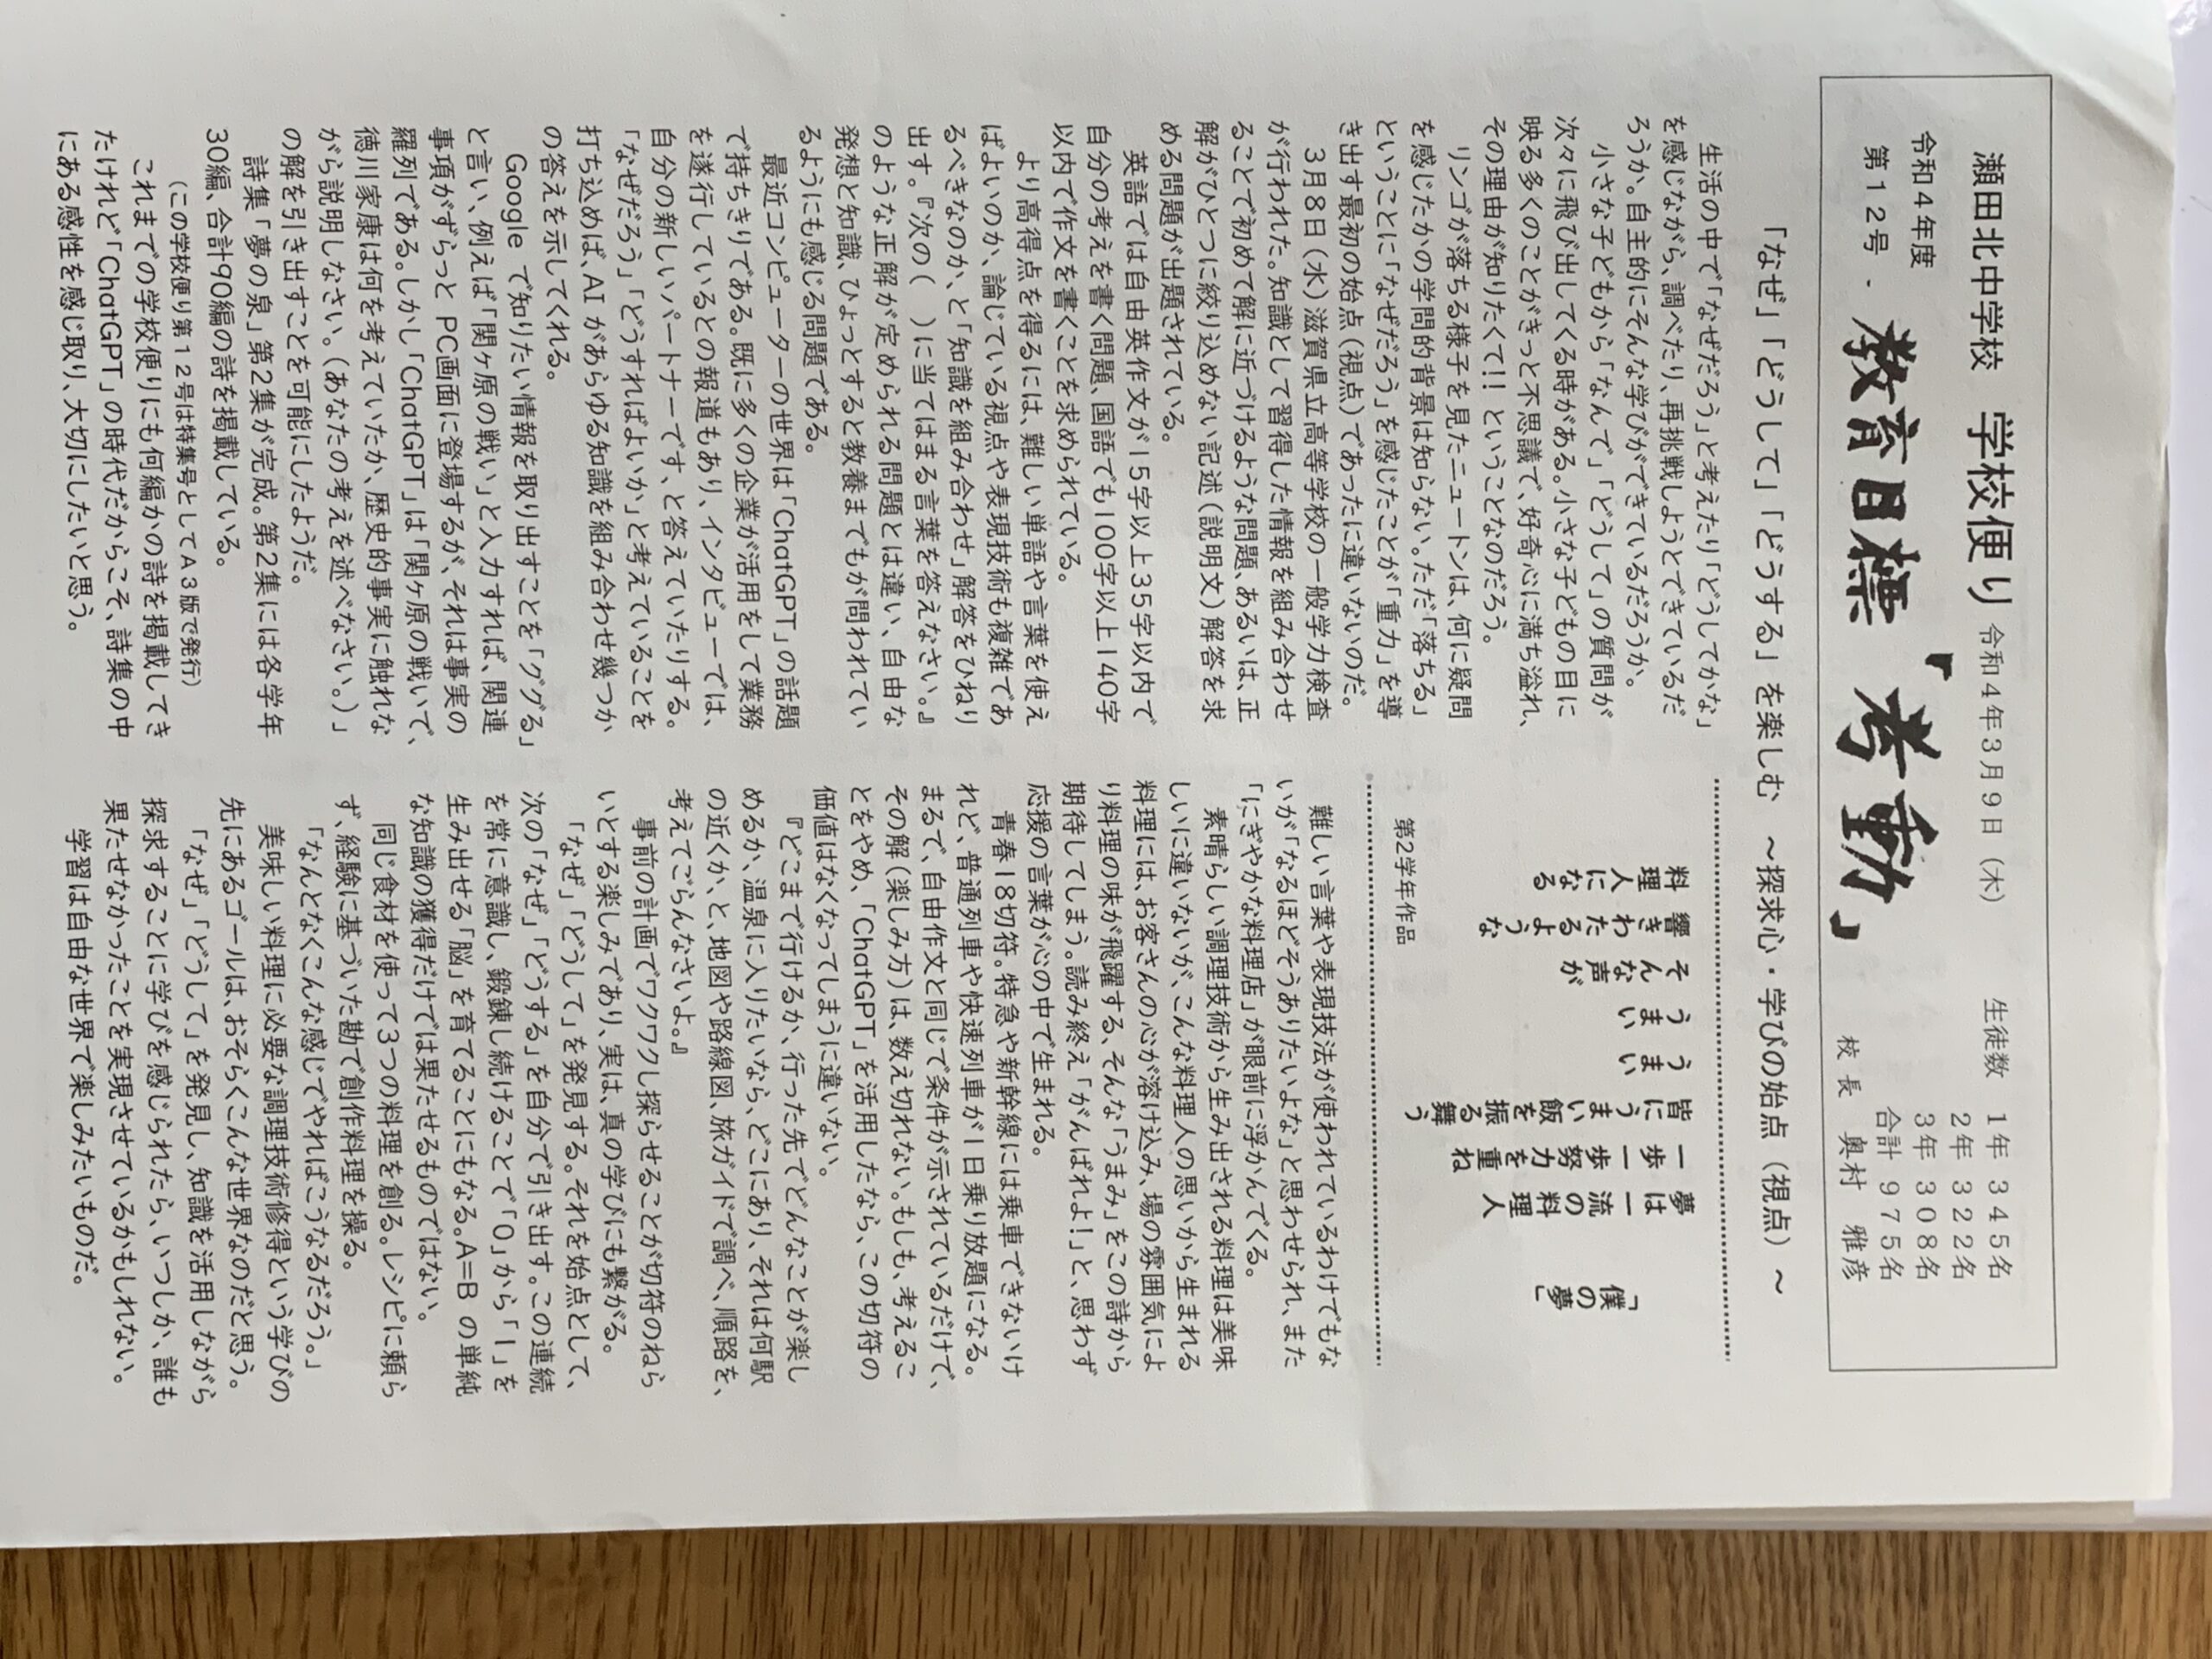 瀬田北中学校 学校便り 令和4年3月9日(木)
令和4年度
第12号 - 教育目標 「考動」
生徒数 1年 345名
2年 322名
3年 308名
合計 975名
校長 奥村 雅彦
「なぜ」「どうして」「どうする」を楽しむ ~探求心・学びの始点(視点)~
生活の中で「なぜだろう」と考えたり「どうしてかな」
を感じながら、調べたり、再挑戦しようとできているだ
ろうか。自主的にそんな学びができているだろうか。
小さな子どもから「なんで」「どうして」の質問が
次々に飛び出してくる時がある。小さな子どもの目に
映る多くのことがきっと不思議で、好奇心に満ち溢れ、
その理由が知りたくて!! ということなのだろう。
リンゴが落ちる様子を見たニュートンは、何に疑問
を感じたかの学問的背景は知らない。ただ「落ちる」
ということに「なぜだろう」を感じたことが「重力」を導
き出す最初の始点(視点)であったに違いないのだ。
3月8日(水)滋賀県立高等学校の一般学力検査
が行われた。知識として習得した情報を組み合わせ
ることで初めて解に近づけるような問題、あるいは、正
解がひとつに絞り込めない記述(説明文)解答を求
める問題が出題されている。
英語では自由英作文が15字以上35字以内で
自分の考えを書く問題、国語でも100字以上140字
以内で作文を書くことを求められている。
より高得点を得るには、難しい単語や言葉を使え
ばよいのか、論じている視点や表現技術も複雑であ
るべきなのか、と「知識を組み合わせ」解答をひねり
出す。『次の( )に当てはまる言葉を答えなさい。』
のような正解が定められる問題とは違い、自由な
発想と知識、ひょっとすると教養までもが問われてい
るようにも感じる問題である。
最近コンピューターの世界は「ChatGPT」の話題
で持ちきりである。既に多くの企業が活用をして業務
を遂行しているとの報道もあり、インタビューでは、
自分の新しいパートナーです、と答えていたりする。
「なぜだろう」「どうすればよいか」と考えていることを
打ち込めば、AI があらゆる知識を組み合わせ幾つか
の答えを示してくれる。
Google で知りたい情報を取り出すことを「ググる」
と言い、例えば「関ヶ原の戦い」と入力すれば、関連
事項がずらっと PC画面に登場するが、それは事実の
羅列である。しかし「ChatGPT」は「関ヶ原の戦いで、
徳川家康は何を考えていたか、歴史的事実に触れな
がら説明しなさい。(あなたの考えを述べなさい。)」
の解を引き出すことを可能にしたようだ。
詩集「夢の泉」第2集が完成。第2集には各学年
30編、合計90編の詩を掲載している。
(この学校便り第12号は特集号としてA3版で発行)
これまでの学校便りにも何編かの詩を掲載してき
たけれど「ChatGPT」の時代だからこそ、詩集の中
にある感性を感じ取り、大切にしたいと思う。
「僕の夢」
夢は一流の料理人
一歩一歩努力を重ね
皆にうまい飯を振る舞う
うまい
うまい
そんな声が
響きわたるような
料理人になる
第2学年作品
難しい言葉や表現技法が使われているわけでもな
いが「なるほどそうありたいよな」と思わせられ、また
「にぎやかな料理店」が眼前に浮かんでくる。
素晴らしい調理技術から生み出される料理は美味
しいに違いないが、こんな料理人の思いから生まれる
料理には、お客さんの心が溶け込み、場の雰囲気によ
り料理の味が飛躍する、そんな「うまみ」をこの詩から
期待してしまう。読み終え「がんばれよ!」と、思わず
応援の言葉が心の中で生まれる。
青春18切符。特急や新幹線には乗車できないけ
れど、普通列車や快速列車が1日乗り放題になる。
まるで、自由作文と同じで条件が示されているだけで、
その解(楽しみ方)は、数え切れない。もしも、考えるこ
とをやめ、「ChatGPT」を活用したなら、この切符の
価値はなくなってしまうに違いない。
『どこまで行けるか、行った先でどんなことが楽し
めるか、温泉に入りたいなら、どこにあり、それは何駅
の近くか、と、地図や路線図、旅ガイドで調べ、順路を、
考えてごらんなさいよ。』
事前の計画でワクワクし探らせることが切符のねら
いとする楽しみであり、実は、真の学びにも繋がる。
「なぜ」「どうして」を発見する。それを始点として、
次の「なぜ」「どうする」を自分で引き出す。この連続
を常に意識し、鍛錬し続けることで「0」から「1」を
生み出せる「脳」を育てることにもなる。A=B の単純
な知識の獲得だけでは果たせるものではない。
同じ食材を使って3つの料理を創る。レシピに頼ら
ず、経験に基づいた勘で創作料理を操る。
「なんとなくこんな感じでやればこうなるだろう。」
美味しい料理に必要な調理技術修得という学びの
先にあるゴールは、おそらくこんな世界なのだと思う。
「なぜ」「どうして」を発見し、知識を活用しながら
探求することに学びを感じられたら、いつしか、誰も
果たせなかったことを実現させているかもしれない。
学習は自由な世界で楽しみたいものだ。